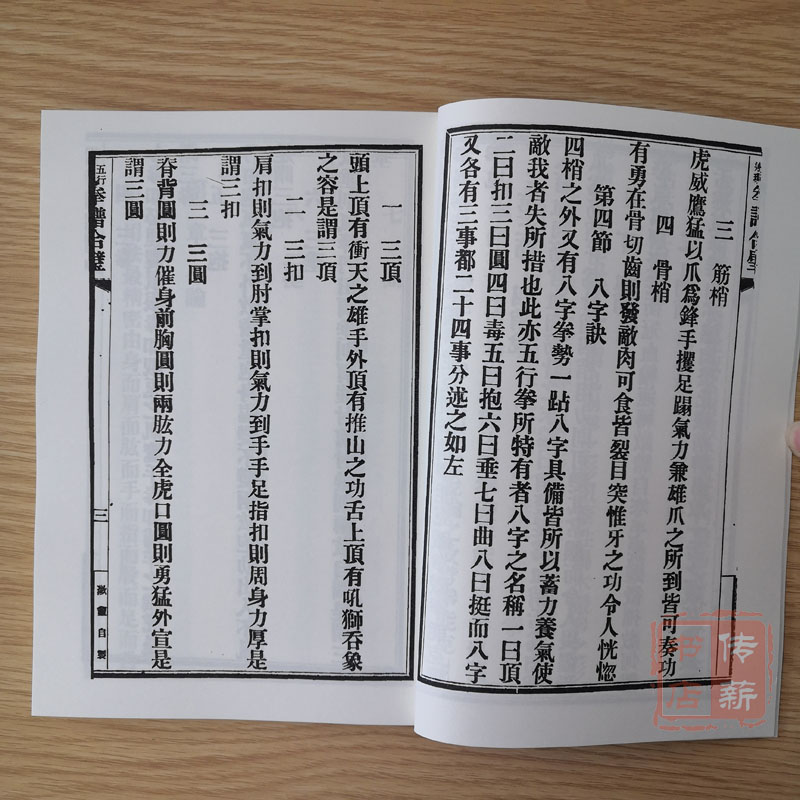 三　筋梢
虎威鷹猛以爪為鋒手攫足蹋氣力兼雄爪之所到皆可奏功
四　骨梢
有勇在骨切齒則發敵肉可食眥裂目突惟牙之功令人恍惚
第四節　八字訣
四梢之外又有八字拳勢一跕八字具備皆所以蓄力養氣使
敵我者失所措也此亦五行拳所特有者八字之名稱一曰頂
二曰扣三曰圓四曰毒五曰抱六曰垂七曰曲八曰挺而八字
又各有三事都二十四事分述之如左
一　三頂
頭上頂有衝天之雄手外頂有推山之功舌上頂有吼獅吞象
之容是謂三頂
二　三扣
肩扣則氣力到肘掌扣則氣力到手手足指扣則周身力厚是
謂三扣
三　三圓
脊背圓則力催身前胸圓則兩肱力全虎口圓則勇猛外宣是
謂三圓
五行拳譜合璧
三
自製
传薪
书店